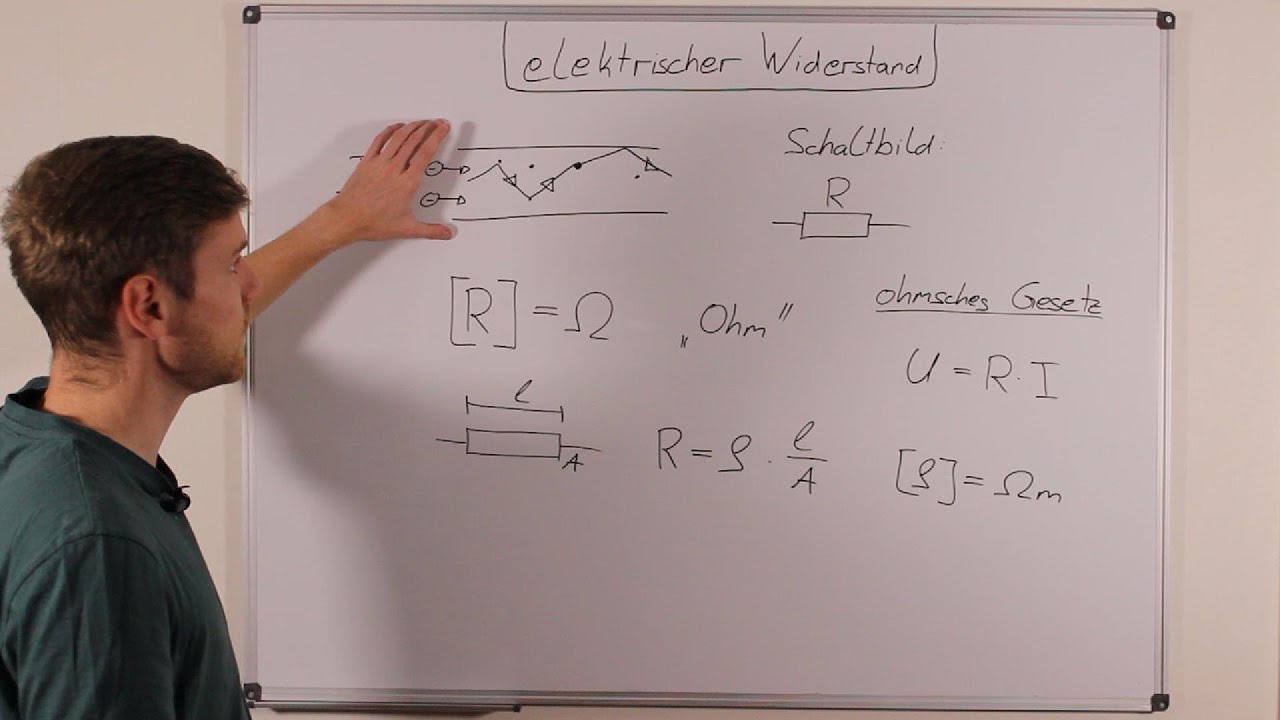 elektrischer Widerstand
Schaltbild:
R
[R] = Ω „Ohm”
ohmsches Gesetz
U = R · I
l
A
R = ϱ · l/A
[ϱ] = Ωm